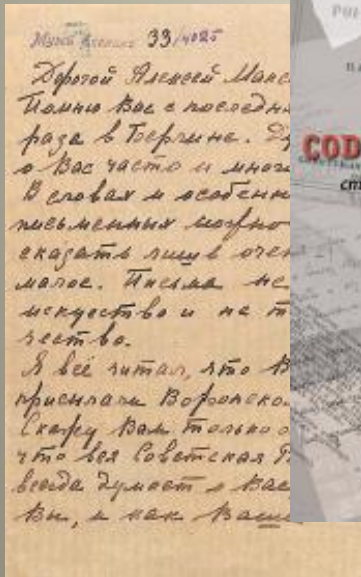 Музей Есенина 33/4025
Дорогой Алексей Макс
Помню Вас с последн
раза в Берлине. Ду
о Вас часто и много
В словах и особенн
письменных можно
сказать лишь очен
малое. Письма не
искусство и не т
чество.
Я всё читал, что В
присылали Воронско
Скажу Вам только о
что вся Советская Р
всегда думает о Вас
Вы, и как Ваше
СОД
ст